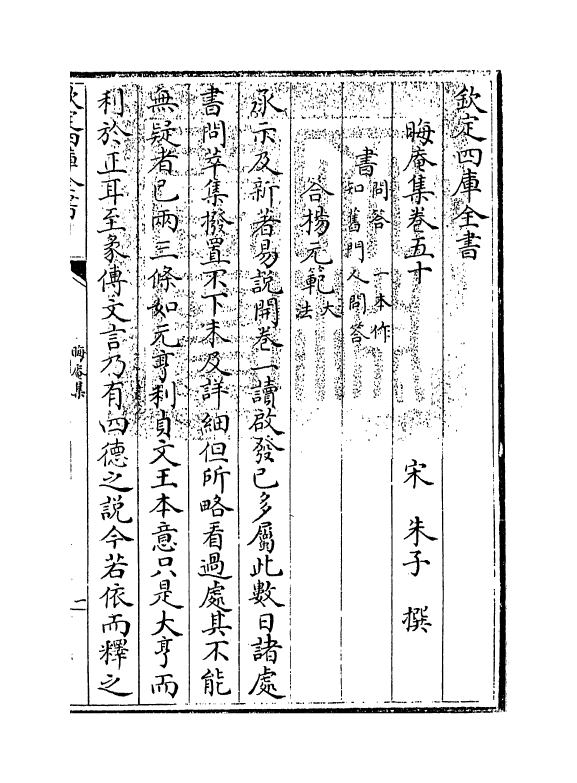 欽定四庫全書
晦庵集卷五十
宋 朱子 撰
書問答 一本作
知舊門人問答
答楊元範大
法
承示及新著易說開卷一讀啟發已多屬此數日諸處
書問萃集撥置不下未及詳細但所略看過處其不能
無疑者已兩三條如元亨利貞文王本意只是大亨而
利於正耳至彖傳文言乃有四德之說今若依而釋之
欽定四庫全書
晦庵集